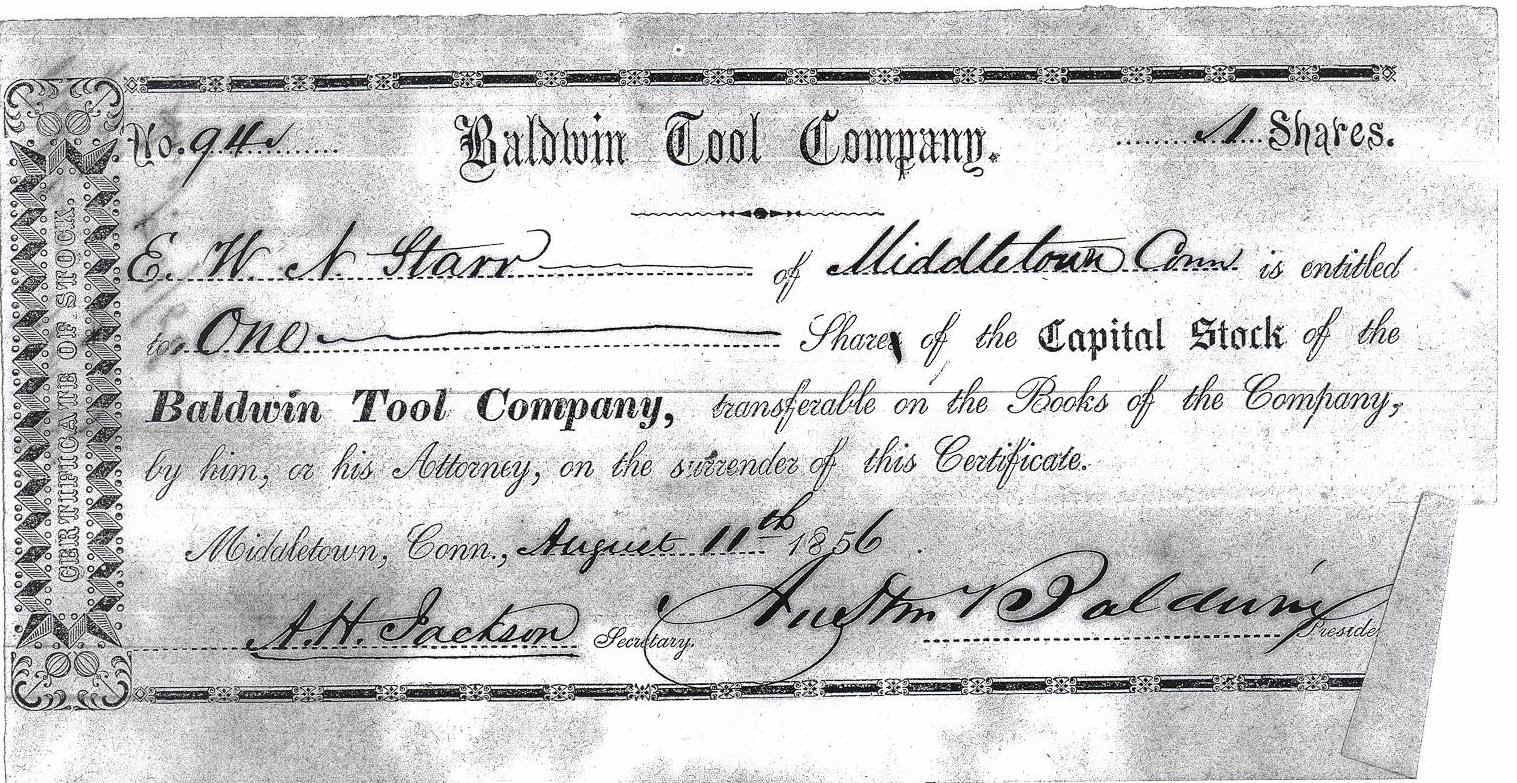 No. 94 Baldwin Tool Company. 1 Shares.
E. W. N. Starr of Middletown Conn is entitled
to One Share of the Capital Stock of the
Baldwin Tool Company, transferable on the Books of the Company,
by him, or his Attorney, on the surrender of this Certificate.
Middletown, Conn., August 11th 1856
A. H. Jackson Secretary. Austin Baldwin Preside
CERTIFICATE OF STOCK.